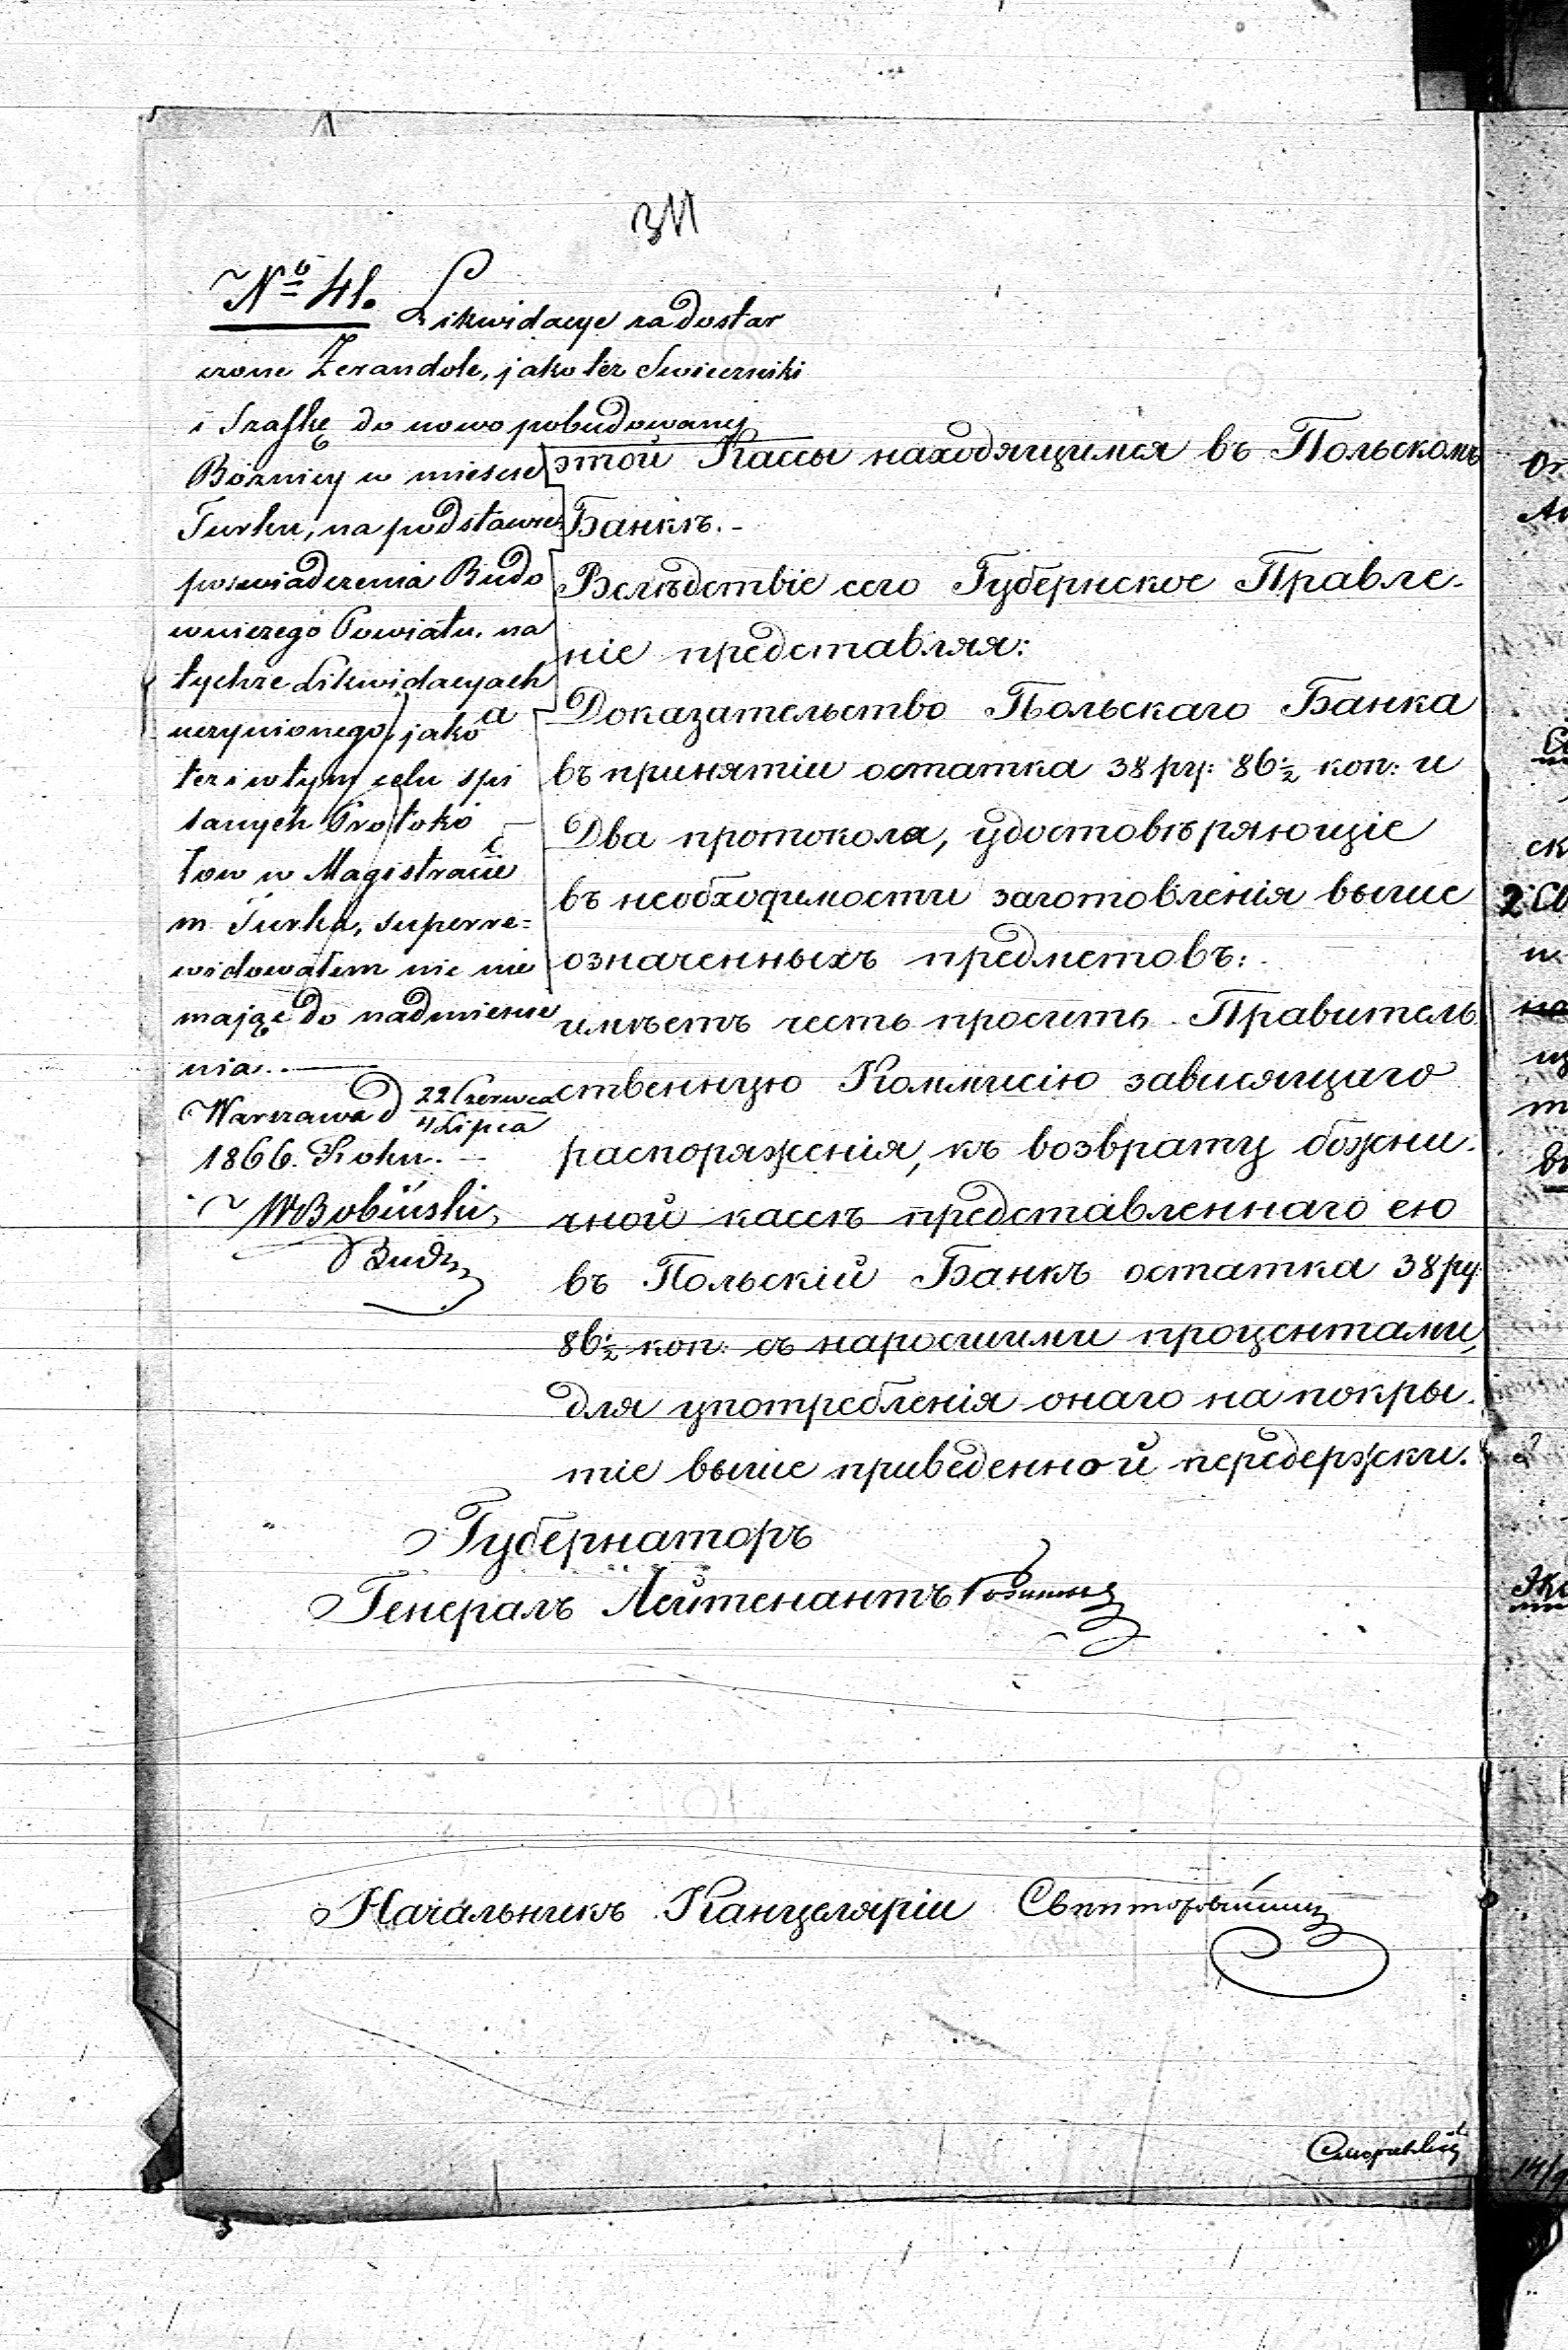 311
№ 41. Likwidacye za dostar
czone Żerandole, jako też Świeczniki
i Szafkę do nowo pobudowany
Bóżnicy w mieście
Turku, na podstawie
poświadczenia Budo
wniczego Powiatu, na
tychże Likwidacyach
uczynionego, jako a
też i w tym celu spi
sanych Protokó
łów w Magistracie
m Turka, superre=
widowałem nic nie
mając do nadmienie
nia.
Warszawa d 22 Czerwca
4 Lipca
1866. Roku.
WBobiński
Bud
этой Кассы находящимся въ Польскомъ
Банкѣ.-
Вслѣдствіе сего Губернское Правле-
ніе представляя:
Доказательство Польскаго Банка
въ принятіи остатка 38 ру: 86½ коп: и
Два протокола, удостовѣряющіе
въ необходимости заготовленія выше
означенныхъ предметовъ:
имѣетъ честь просить Правитель
ственную Коммисію зависящаго
распоряженія, къ возврату божни-
чной кассѣ представленнаго ею
въ Польскій Банкъ остатка 38 ру
86½ коп: съ наросшими процентами,
для употребленія онаго на покры-
тіе выше приведенной передержки.
Губернаторъ
Генералъ Лейтенантъ
Начальникъ Канцеляріи